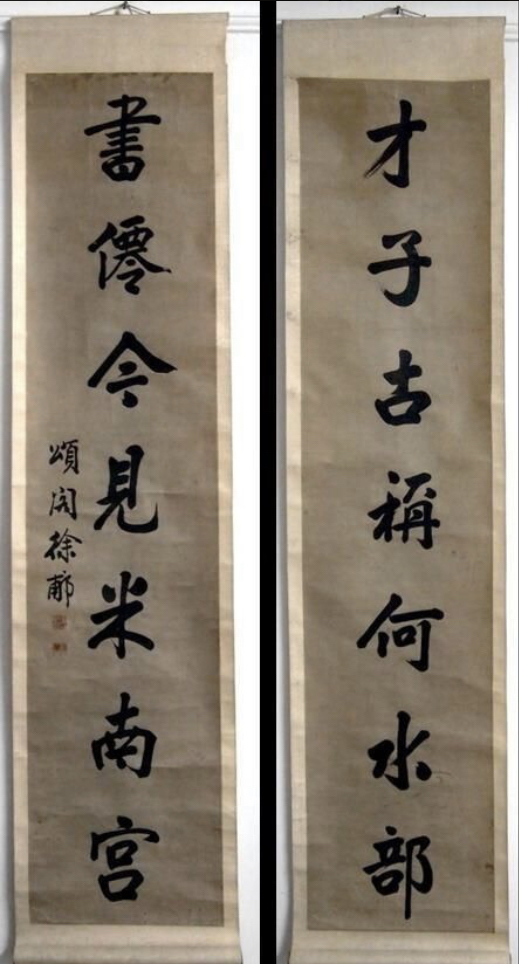 才子古稱何水部
書僊今見米南宮
頌閣徐郙